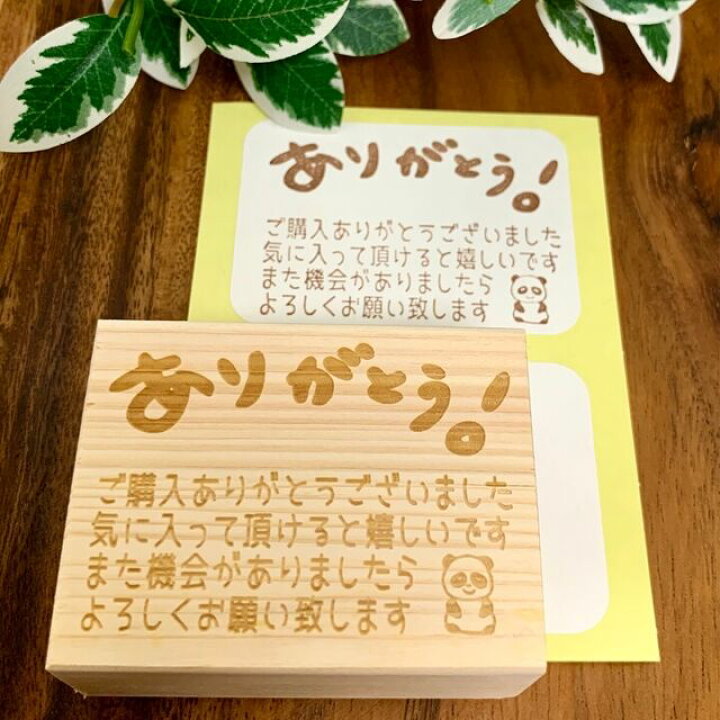 ありがとう!
ご購入ありがとうございました
気に入って頂けると嬉しいです
また機会がありましたら
よろしくお願い致します
ありがとう!
ご購入ありがとうございました
気に入って頂けると嬉しいです
また機会がありましたら
よろしくお願い致します